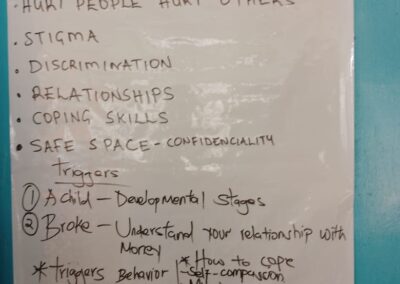 · HURT PEOPLE HURT OTHERS
· STIGMA
· DISCRIMINATION
· RELATIONSHIPS
· COPING SKILLS
· SAFE SPACE - CONFIDENCIALITY
Triggers
① A child - Developmental Stages
② Broke - Understand your relationship with
Money
* Triggers Behavior | * How to cope
- Self-compassion